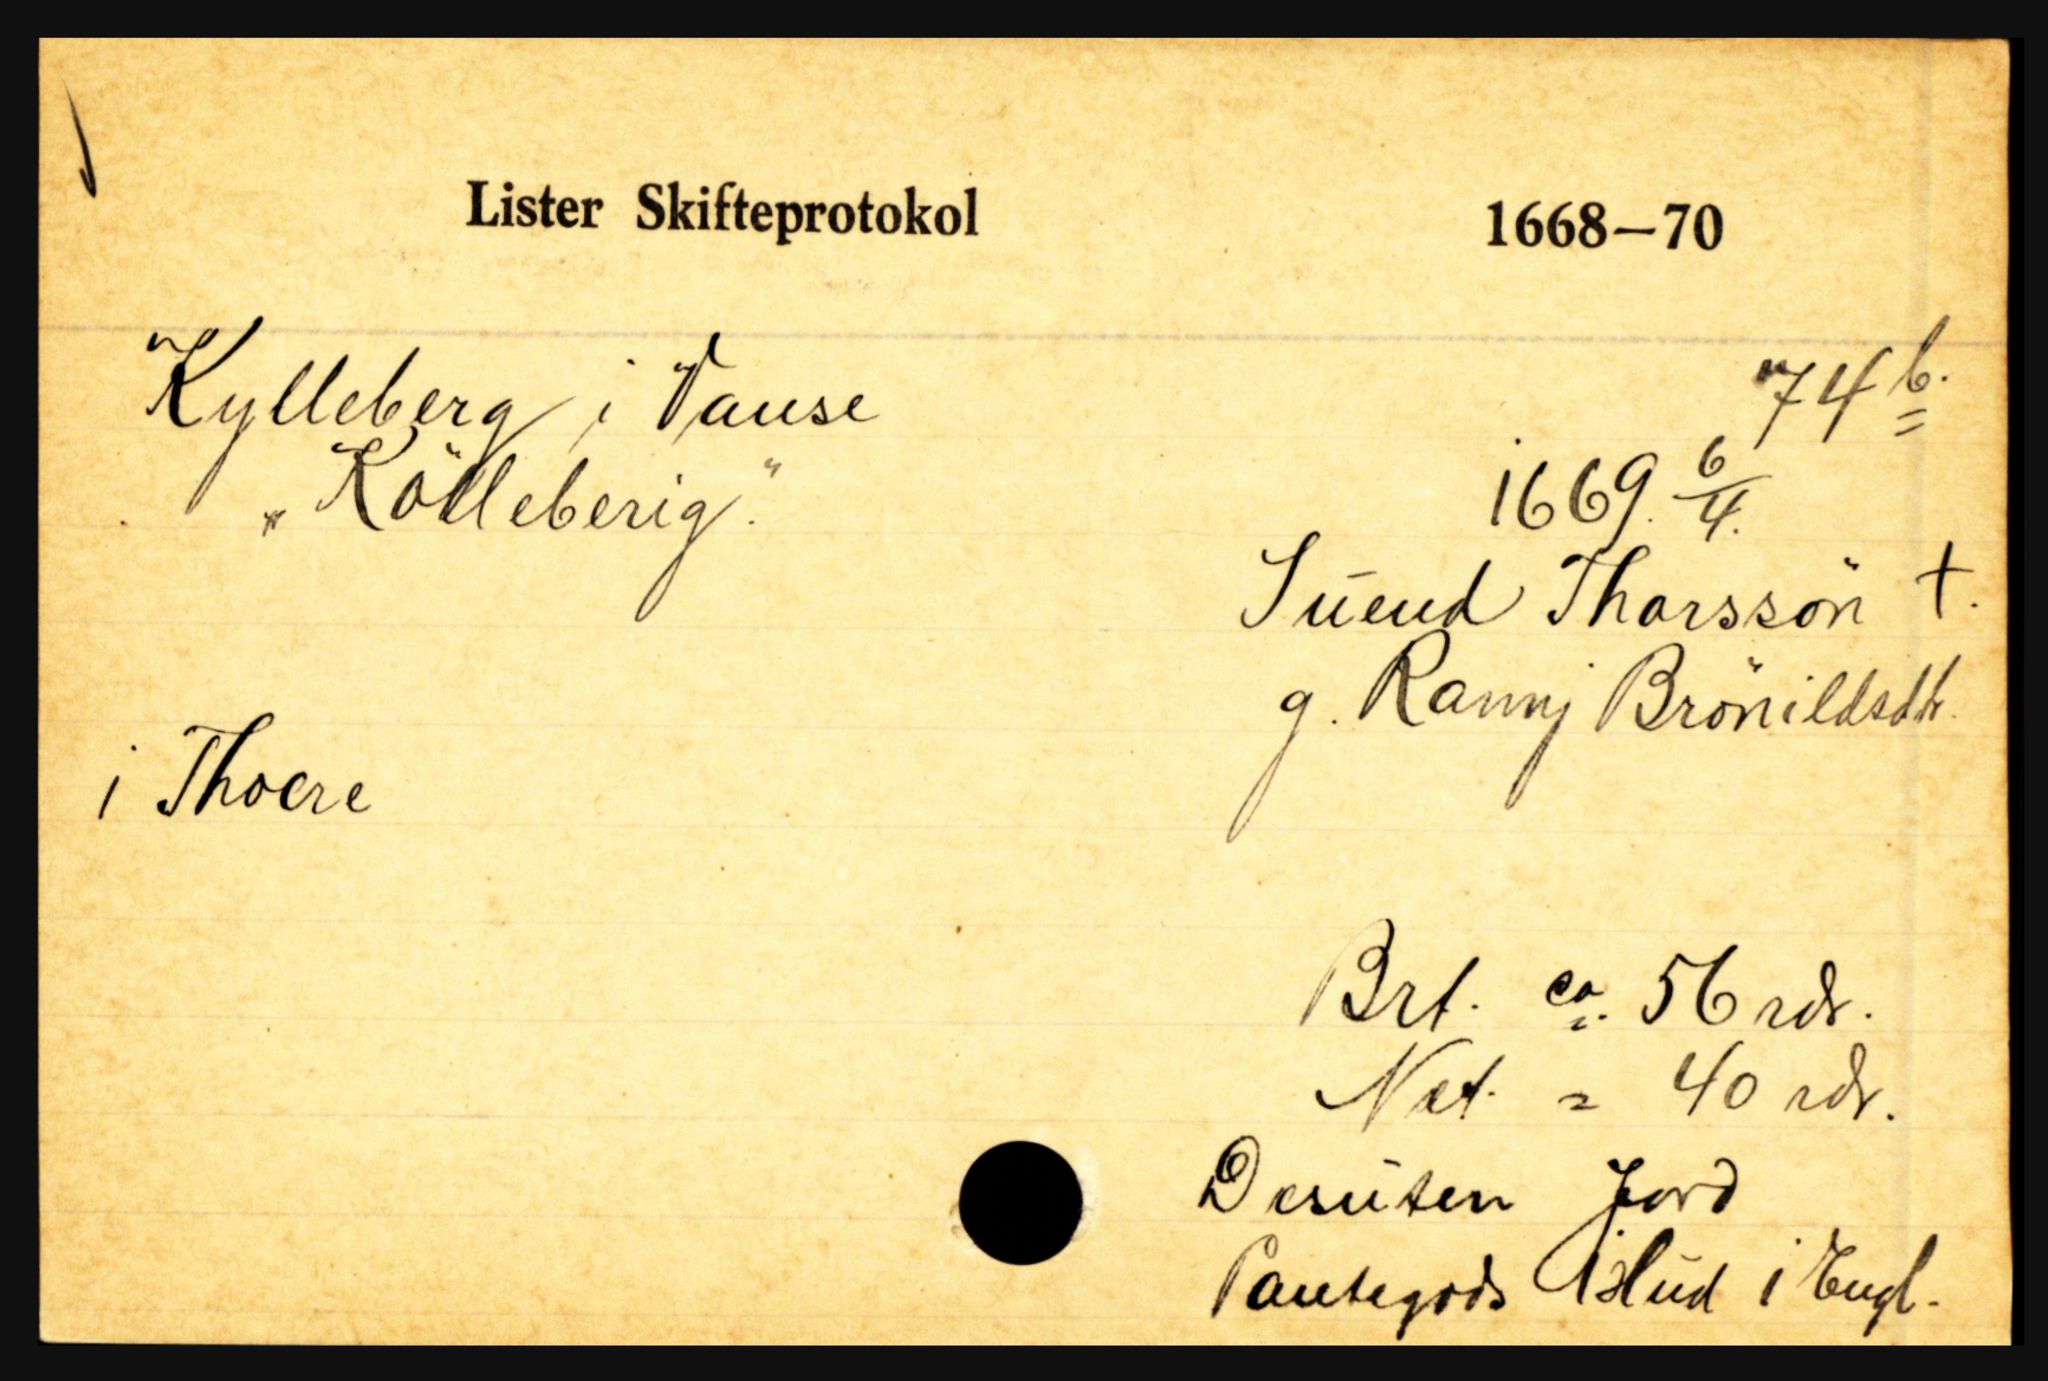 Lister Skifteprotokol 1668—70
Kylleberg i Vanse 74 b.
„Kölleberig." 1669. 6/4.
Suend Thorssön †.
g. Rannj Brönildsdtr.
i Thoere
Brt. ca. 56 rdr.
Net. = 40 rdr.
Desuten Jord
Pantegods 1 Hud i Engl.